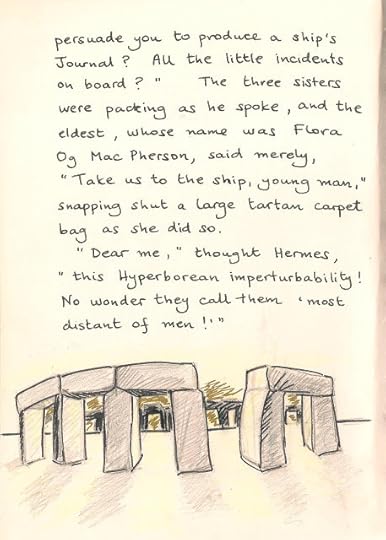 persuade you to produce a ship's
Journal? All the little incidents
on board?" The three sisters
were packing as he spoke, and the
eldest, whose name was Flora
Og Mac Pherson, said merely,
"Take us to the ship, young man,"
snapping shut a large tartan carpet
bag as she did so.
"Dear me," thought Hermes,
"this Hyperborean imperturbability!
No wonder they call them 'most
distant of men!'"